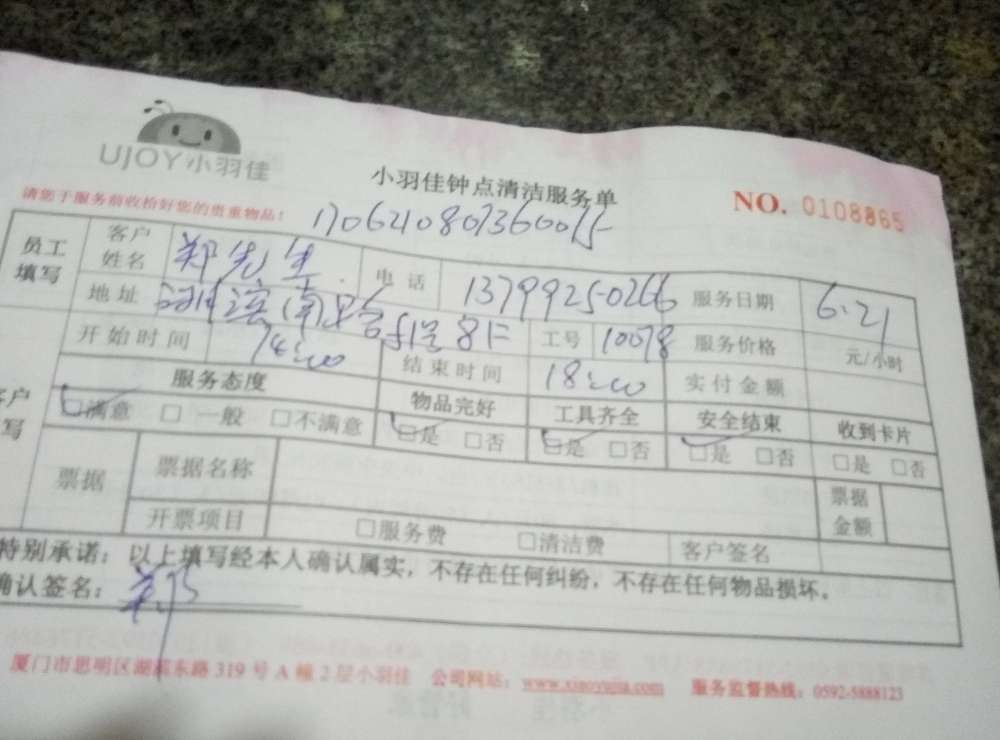 UJOY小羽佳
小羽佳钟点清洁服务单
NO. 0108865
请您于服务前收拾好您的贵重物品！
1706210807360015
员工填写 客户姓名 郑先生 电话 13799250266 服务日期 6.21
地址 工号 10078 服务价格 元/小时
开始时间 14:00 结束时间 18:00 实付金额
服务态度 物品完好 工具齐全 安全结束 收到卡片
☑满意 □一般 □不满意 ☑是 □否 ☑是 □否 ☑是 □否 □是 □否
票据 票据名称 票据金额
开票项目 □服务费 □清洁费 客户签名
特别承诺：以上填写经本人确认属实，不存在任何纠纷，不存在任何物品损坏。
确认签名：郑
厦门市思明区湖滨东路 319 号 A 幢 2 层小羽佳 公司网站：www.xiaoyujia.com 服务监督热线：0592-5888123